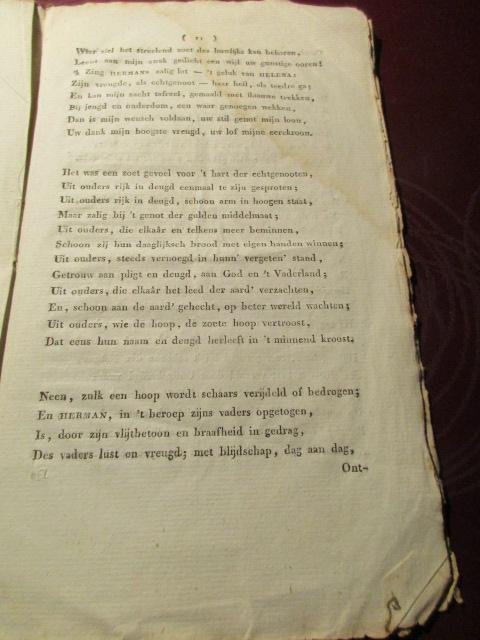 ( 11 )
Wier ziel het streelend zoet des huwlijks kan bekoren,
Leent aan mijn zacht gedicht een wijl uw gunstige ooren!
'k Zing HERMANS zalig lot — 't geluk van HELENA:
Zijn vreugde, als echtgenoot — haar heil, als teedre ga;
En kan mijn zacht tafreel, gemaald met flaauwe trekken,
Bij jeugd en ouderdom, een waar genoegen wekken,
Dan is mijn wensch voldaan, uw stil genot mijn loon,
Uw dank mijn hoogste vreugd, uw lof mijne eerekroon.
Het was een zoet gevoel voor 't hart der echtgenooten,
Uit ouders rijk in deugd eenmaal te zijn gesproten;
Uit ouders rijk in deugd, schoon arm in hoogen staat,
Maar zalig bij 't genot der gulden middelmaat;
Uit ouders, die elkaâr en telkens meer beminnen,
Schoon zij hun daaglijksch brood met eigen handen winnen;
Uit ouders, steeds vernoegd in hunn' vergeten' stand,
Getrouw aan pligt en deugd, aan God en 't Vaderland;
Uit ouders, die elkaâr het leed der aard' verzachten,
En, schoon aan de aard' gehecht, op beter wereld wachten;
Uit ouders, wie de hoop, de zoete hoop vertroost,
Dat eens hun naam en deugd herleeft in 't minnend kroost.
Neen, zulk een hoop wordt schaars verijdeld of bedrogen;
En HERMAN, in 't beroep zijns vaders opgetogen,
Is, door zijn vlijtbetoon en braafheid in gedrag,
Des vaders lust en vreugd; met blijdschap, dag aan dag,
Ont-